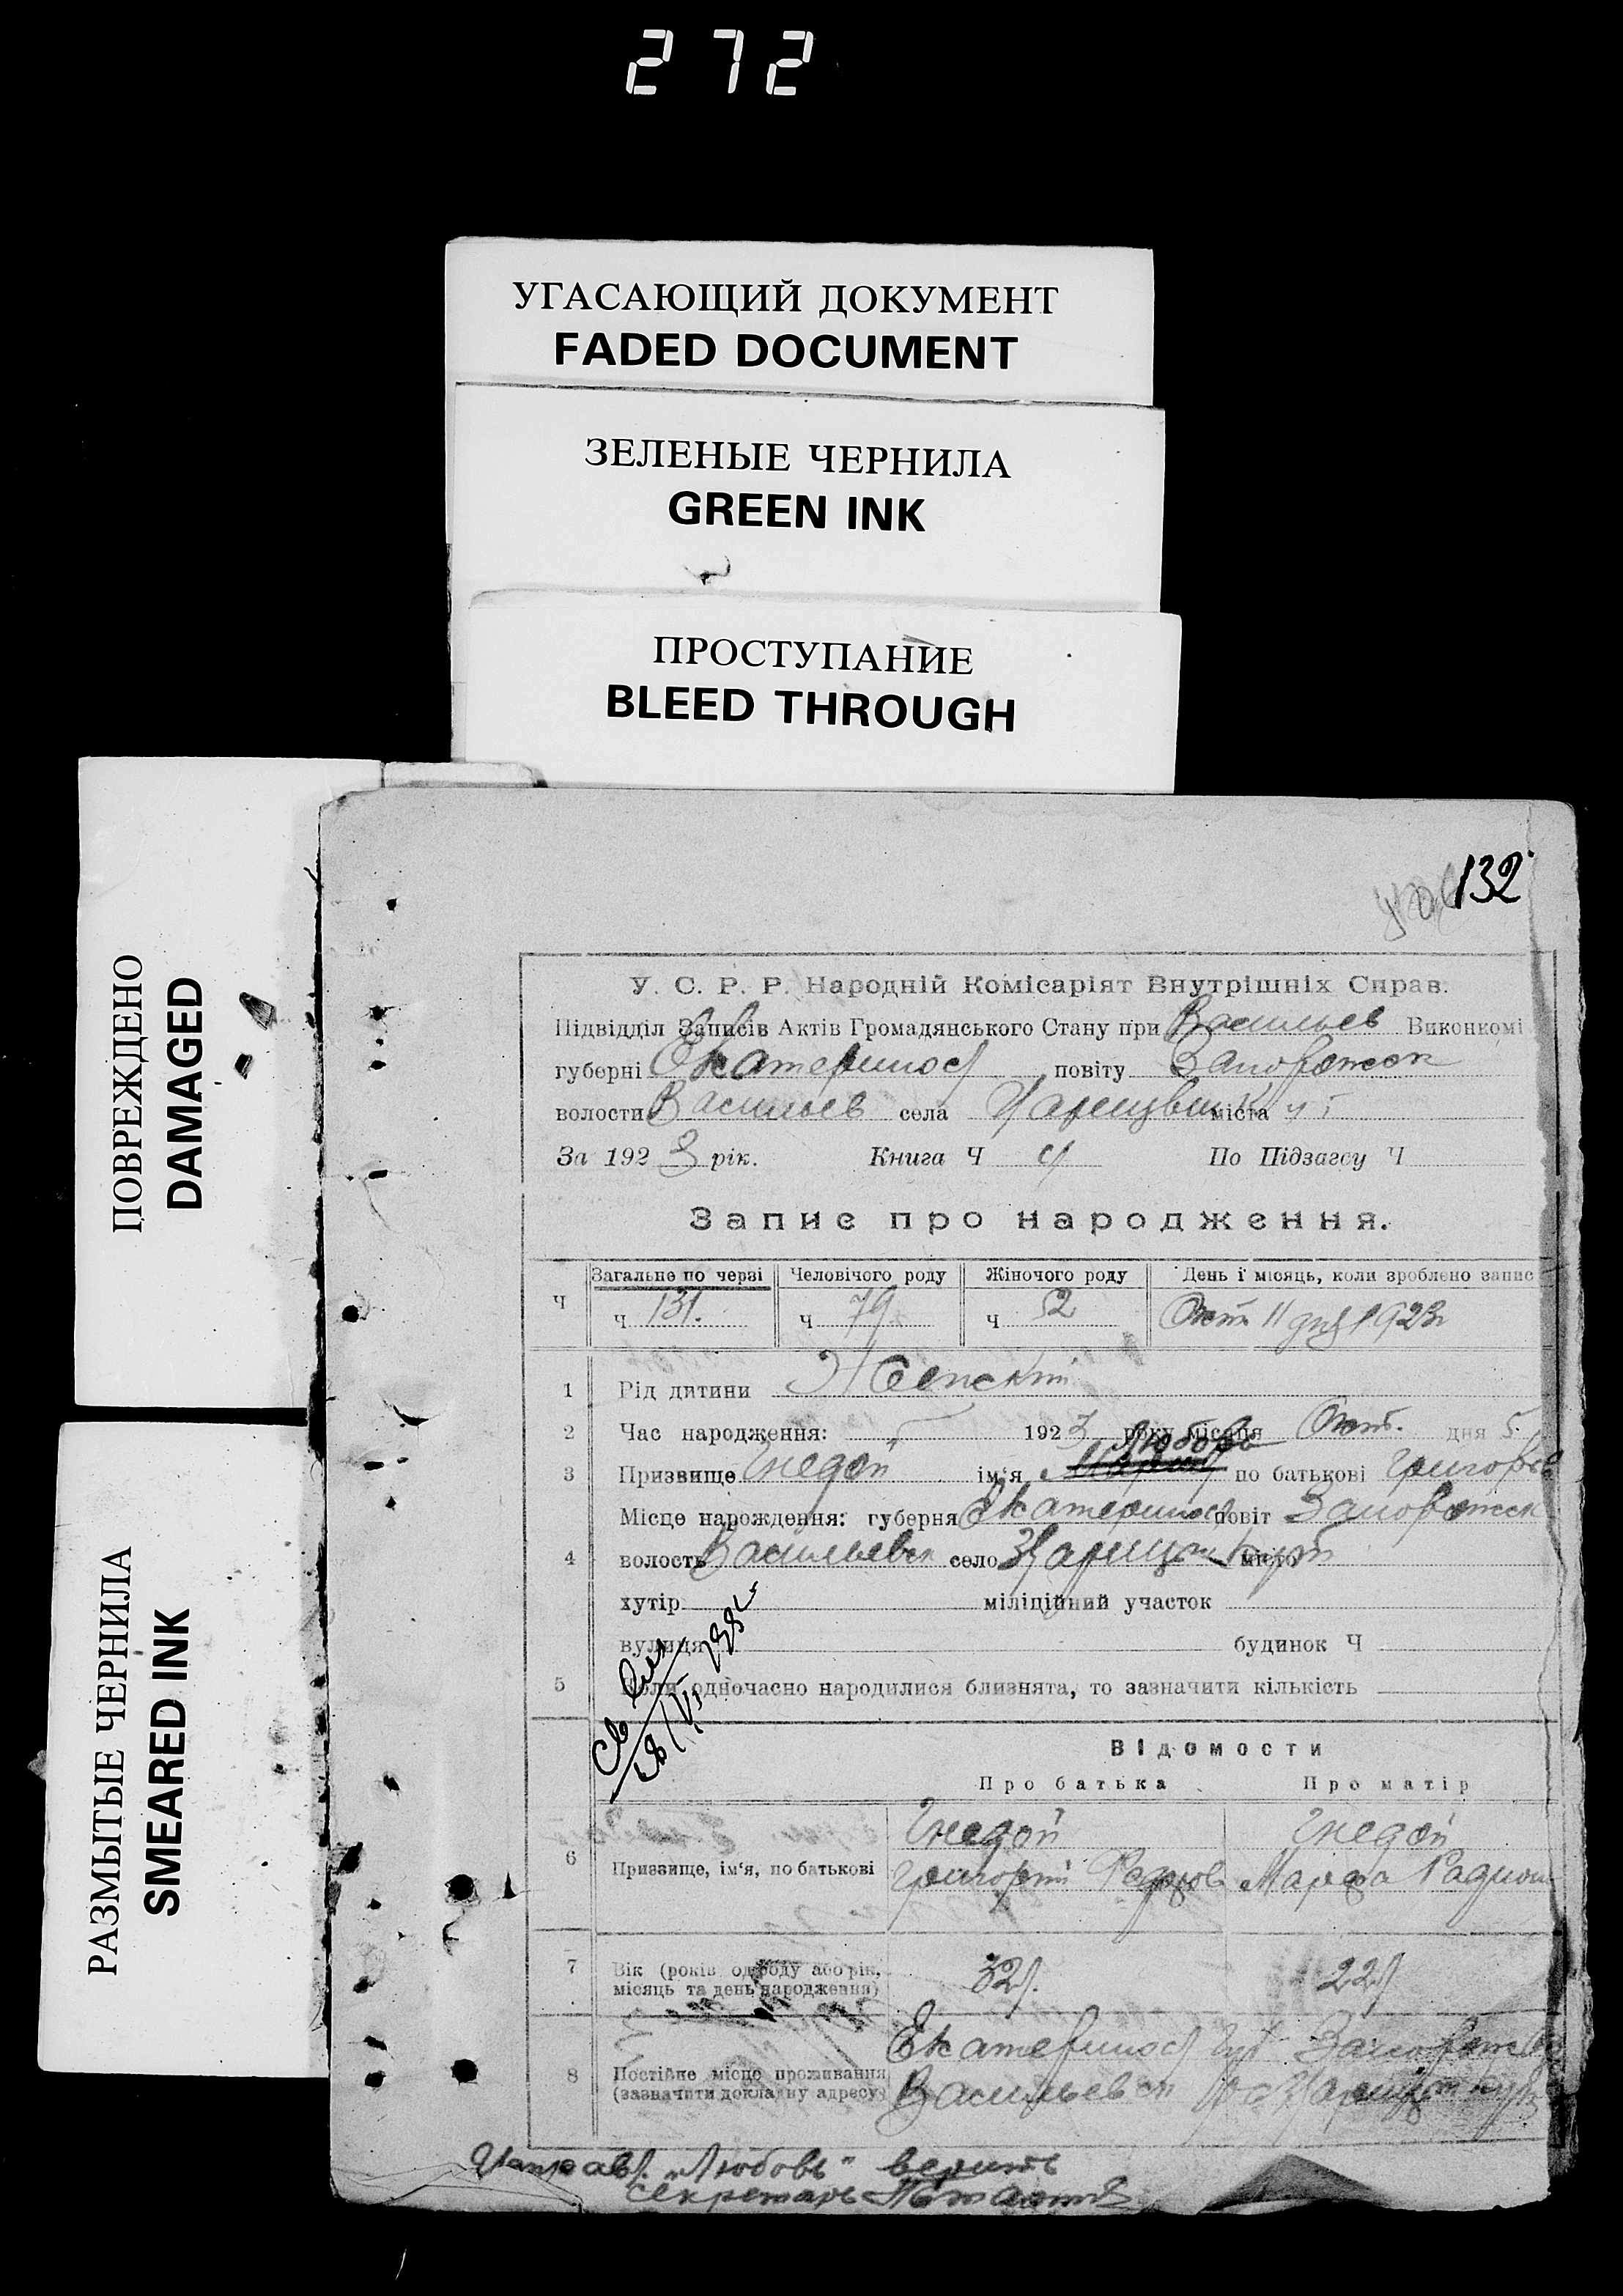 272
УГАСАЮЩИЙ ДОКУМЕНТ
FADED DOCUMENT
ЗЕЛЕНЫЕ ЧЕРНИЛА
GREEN INK
ПРОСТУПАНИЕ
BLEED THROUGH
ПОВРЕЖДЕНО
DAMAGED
РАЗМЫТЫЕ ЧЕРНИЛА
SMEARED INK
132
У. С. Р. Р. Народній Комісаріят Внутрішніх Справ.
Підвідділ Записів Актів Громадянського Стану при Васильев Виконкомі
губерні Екатеринос повіту Запорожск
волости Васильев села міста
За 1923 рік. Книга Ч По Підзагсу Ч
Запис про народження.
Ч Загальне по черзі Человічого роду Жіночого роду День і місяць, коли зроблено запис
Ч 131. Ч 79 Ч 52 Окт. 11 дня 1923
1 Рід дитини Женский
2 Час народження: 1923 року місяця Окт. дня 5.
3 Призвище Гнедой ім'я Любовь по батькові Григорьев
Місце нарождення: губерня Екатеринос повіт Запорожск
4 волость Васильевск село Карицын Кут місто
хутір міліційний участок
вулиця будинок Ч
5 Коли одночасно народилися близнята, то зазначити кількість
Відомости
Про батька Про матір
6 Призвище, ім'я, по батькові Гнедой Гнедой
Григорий Марфа Радион
7 Вік (років одроду або рік, місяць та день народження) 32 22
8 Постійне місце проживання (зазначити докладну адресу) Екатеринос губ Запорожск
Васильевск
Исправл. "Любовь" верить
секретарь